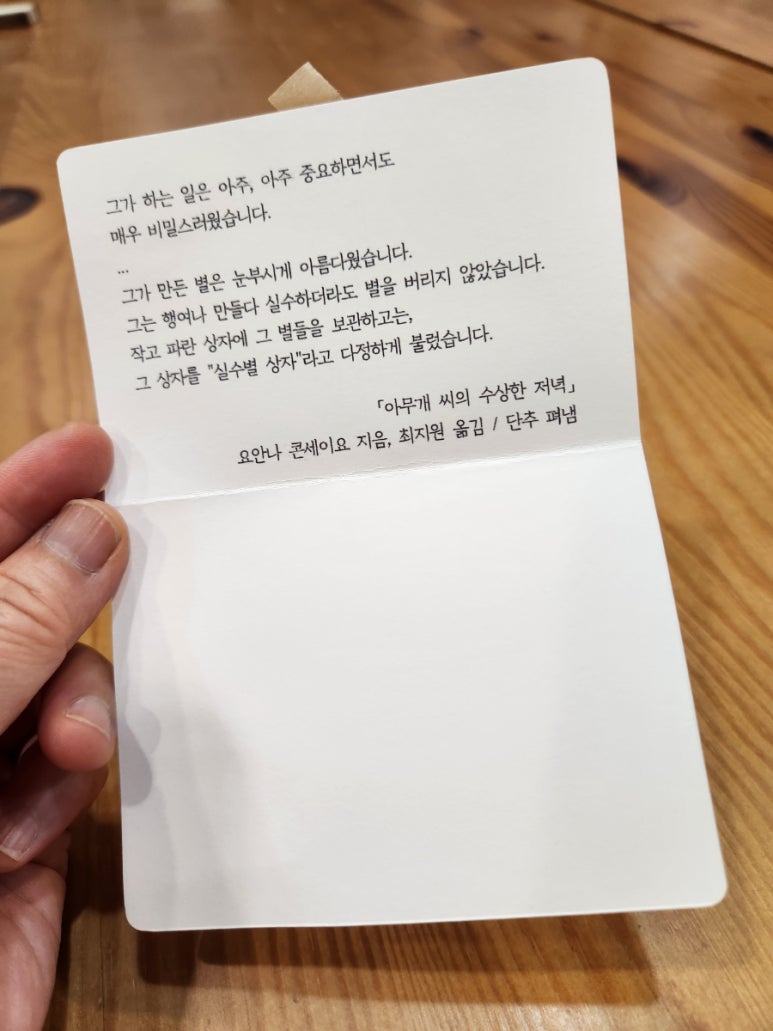 그가 하는 일은 아주, 아주 중요하면서도
매우 비밀스러웠습니다.
...
그가 만든 별은 눈부시게 아름다웠습니다.
그는 행여나 만들다 실수하더라도 별을 버리지 않았습니다.
작고 파란 상자에 그 별들을 보관하고는,
그 상자를 "실수별 상자"라고 다정하게 불렀습니다.
「아무개 씨의 수상한 저녁」
요안나 콘세이요 지음, 최지원 옮김 / 단추 펴냄